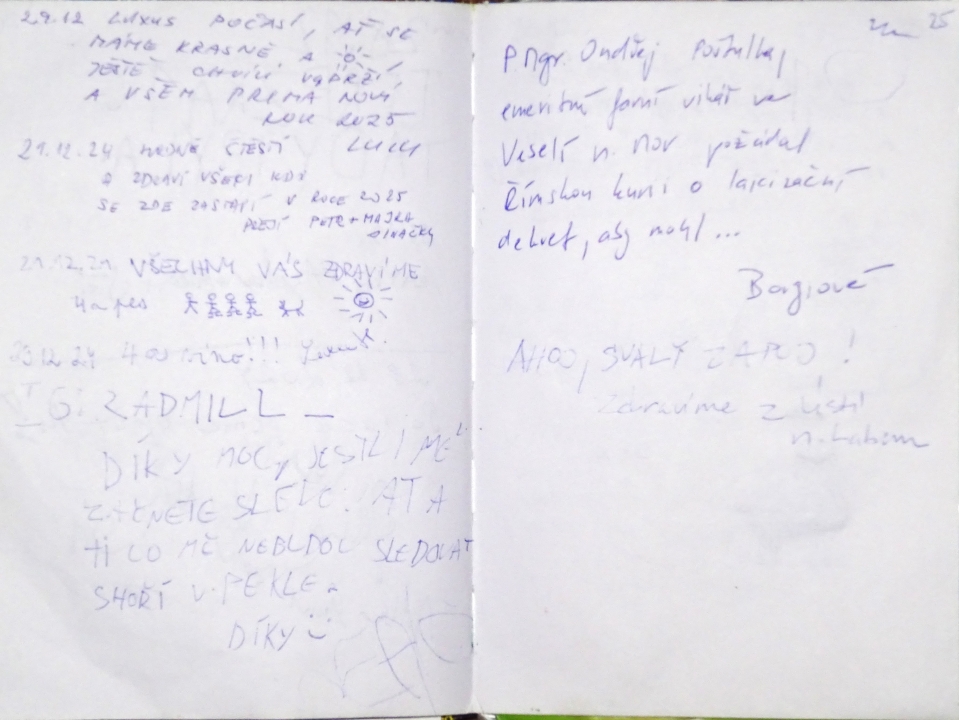 29.12 LUXUS POČASÍ, AŤ SE
MÁME KRASNĚ A
JEŠTĚ CHVÍLI VYDRŽÍ
A VŠEM PRIMA NOVÍ
ROK 2025
21.12.24 HODNĚ ŠTĚSTÍ
A ZDRAVÍ VŠEM KDO
SE ZDE ZASTAVÍ V ROCE 2025
PŘEJÍ PETR + MAJKA
21.12.24 VŠECHNY VÁS ZDRAVÍME
4 a pes
23.12.24 !!!
IG: ZADMILL_
DÍKY MOC, JESTLI MĚ
ZAČNETE SLEDO. AŤ A
TI CO MĚ NEBUDOU SLEDOVAT
SHOŘÍ V PEKLE.
DÍKY
25
P. Mgr. Ondřej Poštulka,
emeritní farní vikář ve
Veselí n. Mor požádal
Římskou kurii o laicizační
dekret, aby mohl...
Borgiové
AHOJ, SVALY ZAPOJ!
Zdravíme z Ústí
n. Labem